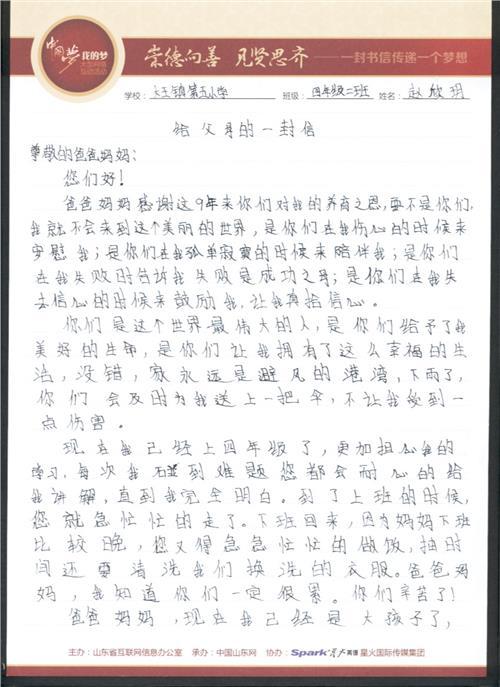 中国梦 我的梦
大型网络
互动活动
崇德向善 见贤思齐 —— 一封书信传递一个梦想
学校：大王镇第五小学 班级：四年级二班 姓名：赵欣玥
给父母的一封信
尊敬的爸爸妈妈：
您们好！
爸爸妈妈感谢这9年来你们对我的养育之恩，要不是你们，
我就不会来到这个美丽的世界，是你们在我伤心的时候来
安慰我；是你们在我孤单寂寞的时候来陪伴我；是你们
在我失败时告诉我失败是成功之母；是你们在我失
去信心的时候来鼓励我，让我再拾信心。
你们是这个世界最伟大的人，是你们给予了我
美好的生命，是你们让我拥有了这么幸福的生
活，没错，家永远是避风的港湾，下雨了，
你们会及时为我送上一把伞，不让我受到一
点伤害。
现在我已经上四年级了，更加担心我的
学习，每次我碰到难题您都会耐心的给
我讲解，直到我完全明白。到了上班的时候，
您就急忙忙的走了。下班回来，因为妈妈下班
比较晚，您又得急急忙忙的做饭，抽时
间还要清洗我们换洗的衣服。爸爸妈
妈，我知道你们一定很累。你们辛苦了！
爸爸妈妈，现在我已经是大孩子了，
主办：山东省互联网信息办公室 承办：中国山东网 协办：Spark 星火英语 星火国际传媒集团